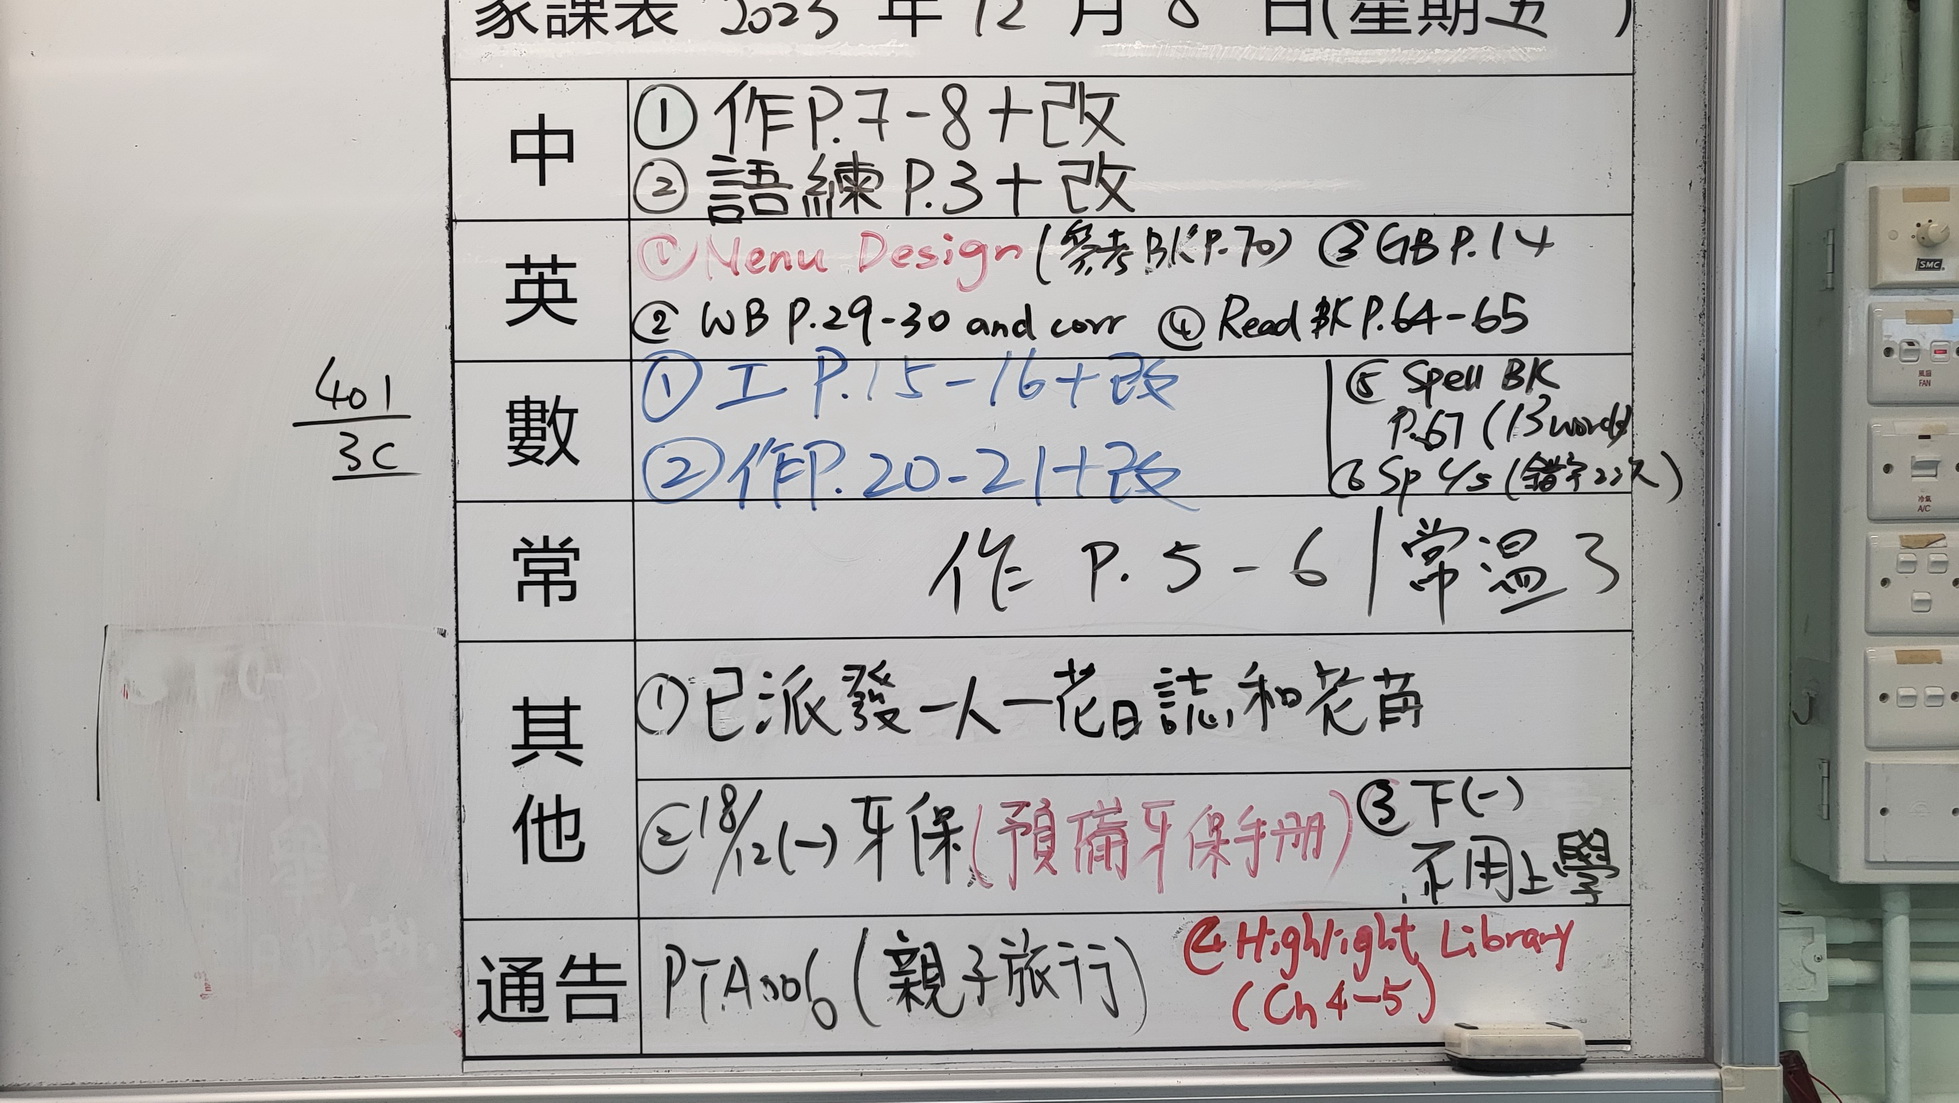 家課表 2023 年 12 月 8 日(星期五 )
中
① 作P.7-8+改
② 語練 P.3+改
英
① Menu Design (參考BK P.70) ③ GB P.14
② WB P.29-30 and corr ④ Read BK P.64-65
數
① 工 P.15-16+改
② 作P.20-21+改
⑤ Spell BK
P.67 (13 words)
⑥ Sp 4/5 (錯字 22次)
401
3C
常
作 P.5-6 | 常溫 3
其他
① 已派發一人一花日誌和花苗
② 18/12(一) 牙保(預備牙保手冊)
③ 下(一)
不用上學
通告
P.T.A006 (親子旅行)
④ Highlight Library
(Ch 4-5)
SMC
風扇
FAN
冷氣
A/C